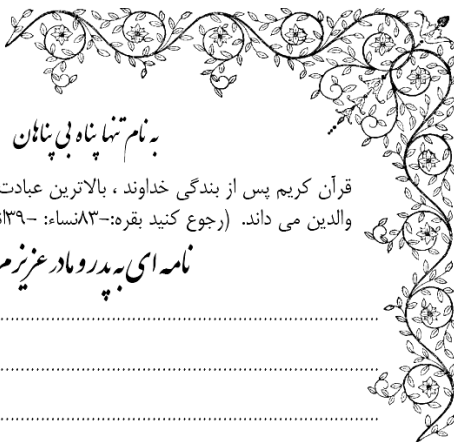 به نام تنها پناه بی پناهان
قرآن کریم پس از بندگی خداوند ، بالاترین عبادت
والدین می داند. (رجوع کنید بقره:-۸۳نساء: -۳۹
نامه ای به پدر و مادر عزیزم